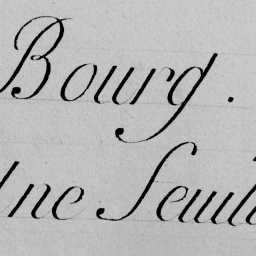 Bourg.
Une Seule